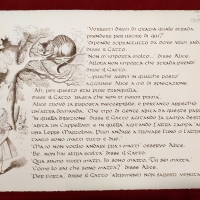 "Vorresti dirmi di grazia quale strada
prendere per uscire di qui?"
"Dipende soprattutto da dove vuoi andare"
disse il Gatto.
"Non m'importa molto..." disse Alice.
"Allora non importa che
disse il Gatto.
"...purché arrivi in qualche posto"
aggiunse Alice a mo' di spiegazione.
"Ah, per questo stai pure tranquilla,"
disse il Gatto, "basta che non ti fermi prima."
Alice trovò la risposta ineccepibile, e pertanto
un'altra domanda. "Che razza di gente abita da queste parti?"
"In quella direzione" disse il Gatto agitando la zampa destra
"abita un Cappellaio: e in quella" agitando l'altra zampa
una Lepre Marzolina. Puoi andare a trovare l'uno o l'altra
tanto sono matti tutti e due."
"Ma io non voglio andare fra i matti" osservò Alice.
"Be', non hai altra scelta" disse il Gatto.
"Qui siamo tutti matti. Io sono matto. Tu sei matta."
"Come lo sai che sono matta?" disse Alice.
"Per forza," disse il Gatto: "altrimenti non saresti venuta